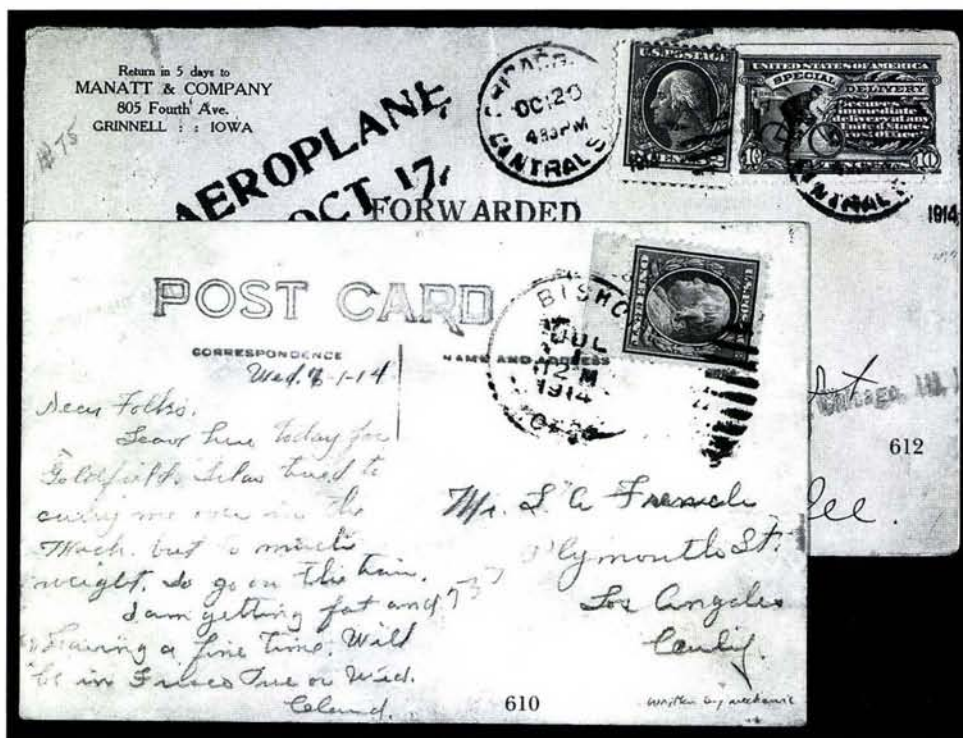 Return in 5 days to
MANATT & COMPANY
805 Fourth Ave.
GRINNELL : : IOWA
# 75
AEROPLANE
OCT. 17,
FORWARDED
CHICAGO
OCT 20
4 30 PM
CENTRAL S
U.S. POSTAGE
CENTS
UNITED STATES OF AMERICA
SPECIAL DELIVERY
Secures
immediate
delivery at any
United States
post office
10 10
1914
Chicago, Ill.
612
lee.
POST CARD
CORRESPONDENCE
NAME AND ADDRESS
BISHO
JUL
1
12 M
1914
CAL
U.S. POS
ONE CENT
Wed. 7-1-14
Dear Folks.
Leave here today for
Goldfield. Silas tried to
carry me over in the
Mach. but to much
weight. So go on the train.
I am getting fat and
having a fine time. Will
be in Frisco Tue or Wed.
Mr. L. A. French
737 Plymouth St.
Los Angeles
610
written by mechanic